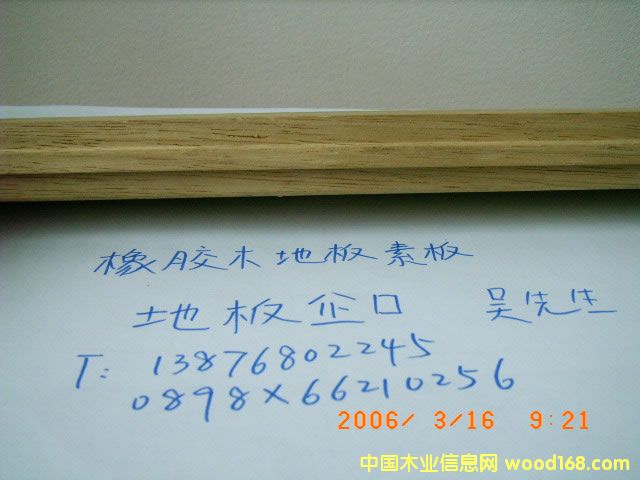 橡胶木地板素板
地板企口 吴先生
T: 13876802245
0898×66210256
2006/ 3/16 9:21
中国木业信息网 wood168.com